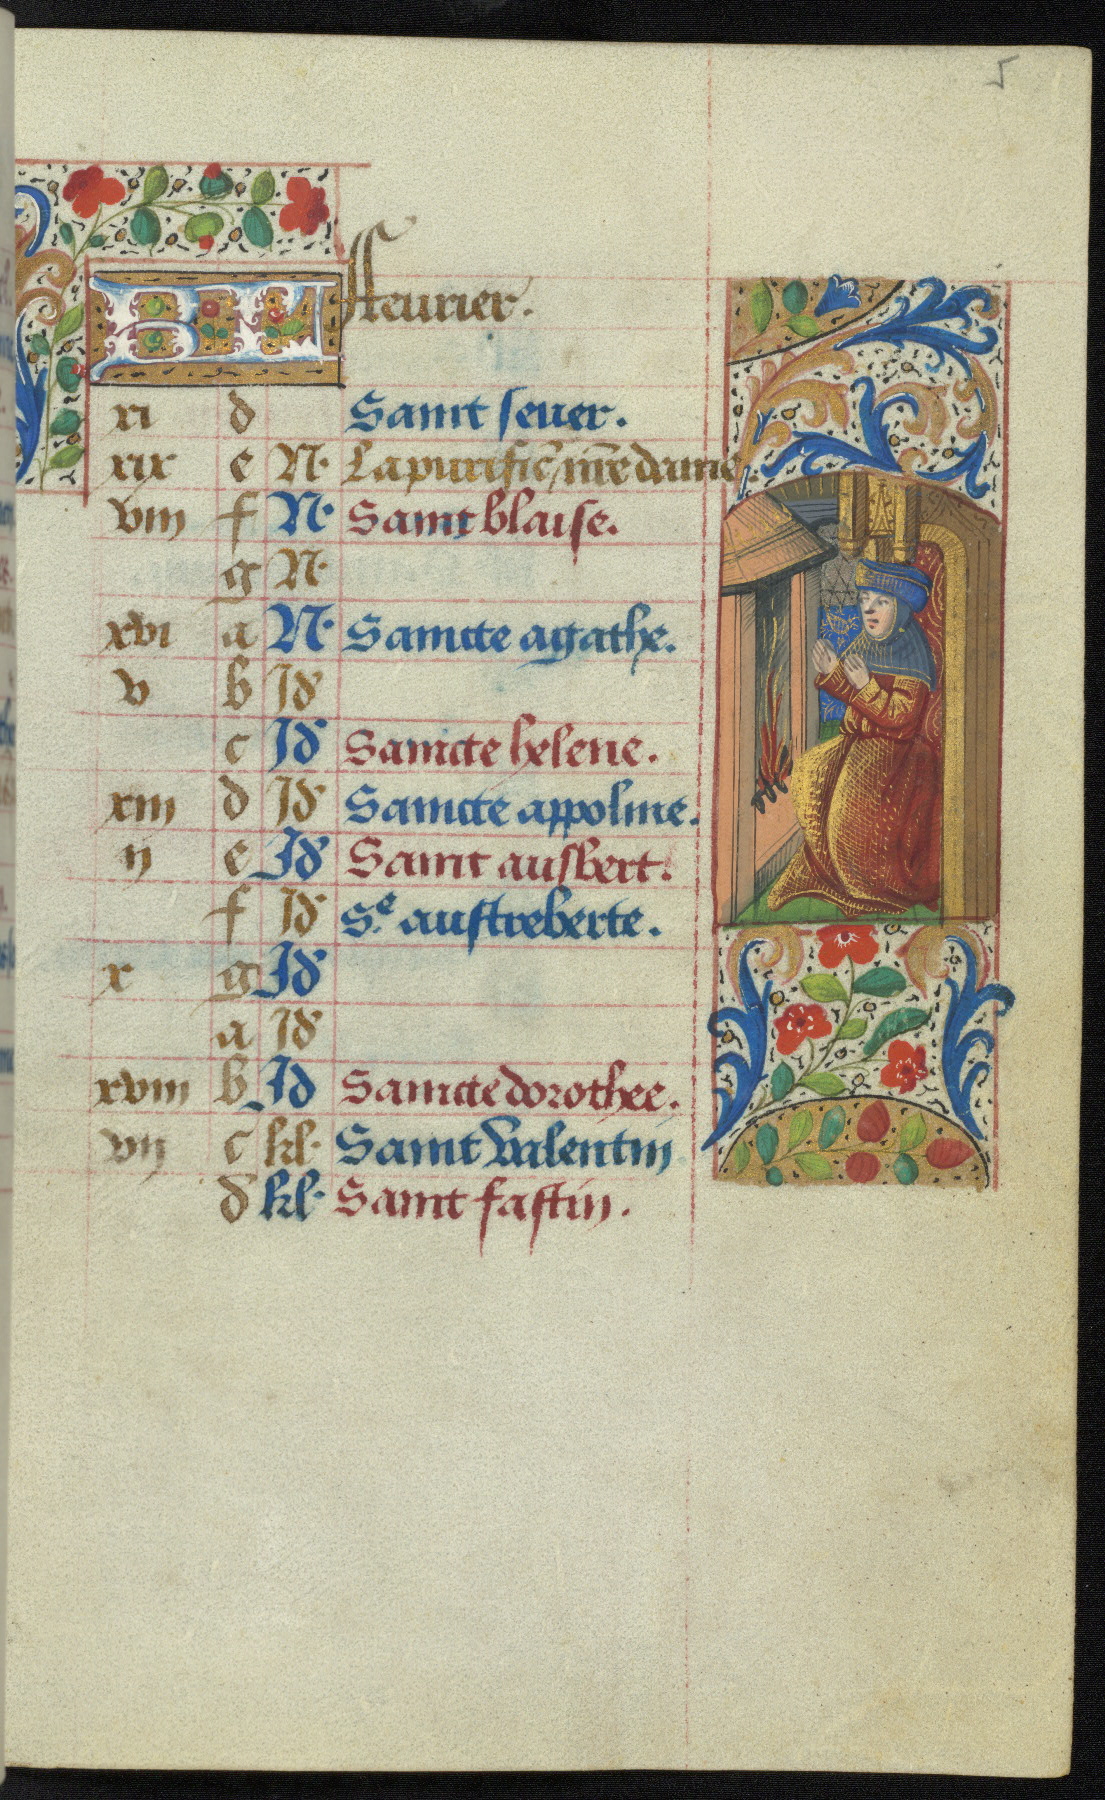 5
KL ffeurier.
xi d Sainct seuer.
xix e N. La purific̄ / nr̄e dame.
viii f N. Sainct blaise.
g N.
xvi a N. Saincte agathe.
v b Id
c Id Saincte helene.
xiii d Id Saincte appoline.
ii e Id Sainct ausbert.
f Id Sᵉ. austreberte.
x g Id
a Id
xviii b Id Saincte dorothee.
vii c kl. Sainct Valentin
d kl. Sainct fastin.